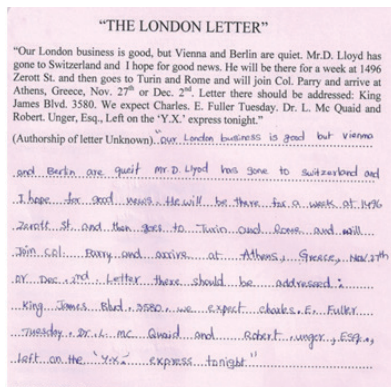 “THE LONDON LETTER”
“Our London business is good, but Vienna and Berlin are quiet. Mr.D. Lloyd has
gone to Switzerland and I hope for good news. He will be there for a week at 1496
Zerott St. and then goes to Turin and Rome and will join Col. Parry and arrive at
Athens, Greece, Nov. 27th or Dec. 2nd. Letter there should be addressed: King
James Blvd. 3580. We expect Charles. E. Fuller Tuesday. Dr. L. Mc Quaid and
Robert. Unger, Esq., Left on the ‘Y.X.’ express tonight.”
(Authorship of letter Unknown). "our London business is good but vienna
and Berlin are queit mr.D. Llyod has gone to switzerland and
I hope for good news. He will be there for a week at 1496
Zerott st. and then goes to Turin and Rome and will
Join Col. Parry and arrive at Athens, Greece, Nov. 27th
or Dec. 2nd. Letter there should be addressed:
King James Blvd. 3580. we expect charles. E. Fuller
Tuesday. Dr. L. mc Quaid and Robert. unger, ESq.,
left on the 'Y.X.' express tonight"